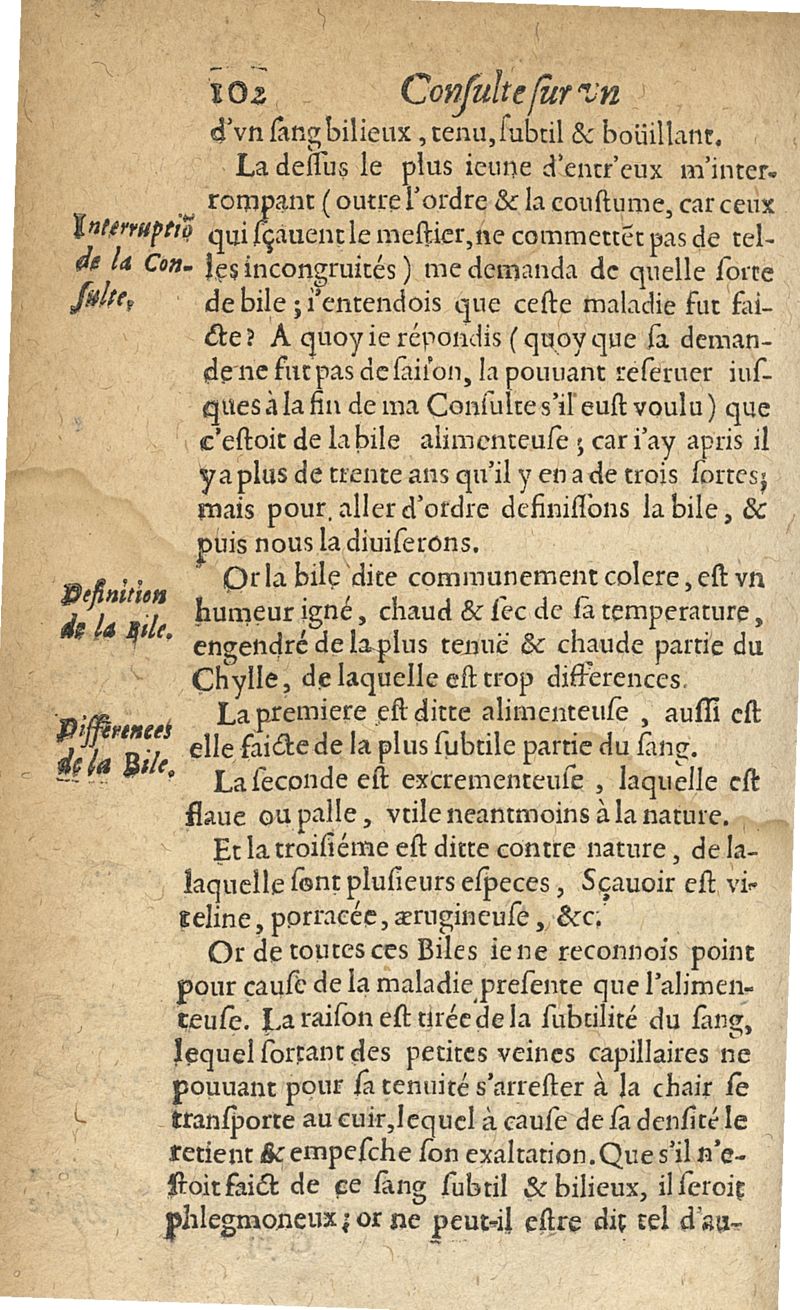 102 Consulte sur vn
d'vn sang bilieux, tenu, subtil & boüillant.
La dessus le plus ieune d'entr'eux m'inter-
rompant (outre l'ordre & la coustume, car ceux
Interruptiõ
qui sçauent le mestier, ne commettẽt pas de tel-
de la Con-
les incongruités) me demanda de quelle sorte
sulte.
de bile; i'entendois que ceste maladie fut fai-
cte? A quoy ie répondis (quoy que sa deman-
de ne fut pas de saison, la pouuant reseruer ius-
ques à la fin de ma Consulte s'il eust voulu) que
c'estoit de la bile alimenteuse; car i'ay apris il
y a plus de trente ans qu'il y en a de trois sortes;
mais pour aller d'ordre definissons la bile, &
puis nous la diuiserons.
Definition
Or la bile dite communement colere, est vn
de la Bile.
humeur igné, chaud & sec de sa temperature,
engendré de la plus tenuë & chaude partie du
Chylle, de laquelle est trop differences.
Differences
La premiere est ditte alimenteuse, aussi est
de la Bile.
elle faicte de la plus subtile partie du sang.
La seconde est excrementeuse, laquelle est
flaue ou palle, vtile neantmoins à la nature.
Et la troisiéme est ditte contre nature, de la-
laquelle sont plusieurs especes, Sçauoir est vi-
teline, porracée, ærugineuse, &c.
Or de toutes ces Biles ie ne reconnois point
pour cause de la maladie presente que l'alimen-
teuse. La raison est tirée de la subtilité du sang,
lequel sortant des petites veines capillaires ne
pouuant pour sa tenuité s'arrester à la chair se
transporte au cuir, lequel à cause de sa densité le
retient & empesche son exaltation. Que s'il n'e-
stoit faict de ce sang subtil & bilieux, il seroit
phlegmoneux; or ne peut-il estre dit tel d'au-